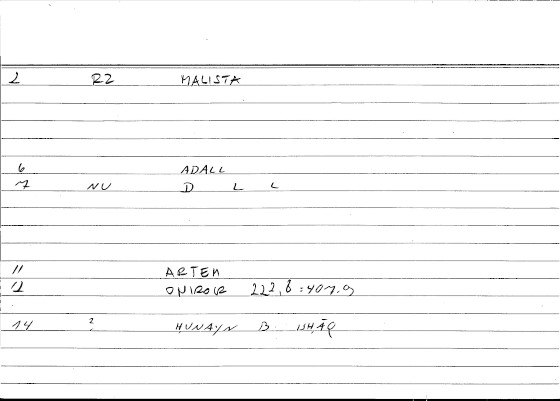 2 RZ MALISTA
6 ADALL
7 NU D L L
11 ARTEM
12 ONIROR 222,8 = 407.9
14 ? HUNAYN B ISḤĀQ